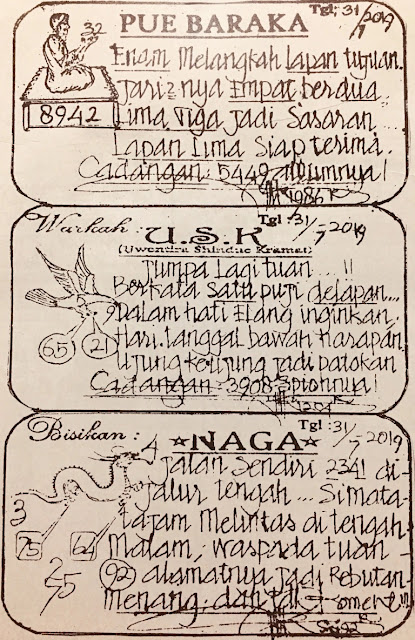 Tgl; 31/7 2019
PUE BARAKA
32
8942
Enam Melangkah Lapan tujuan..
Jari2nya Empat berdua..
Lima Tiga jadi Sasaran
Lapan Lima Siap terima.
Cadangan: 5449
1986
Tgl: 31/7 2019
Warkah:
U.S.K
(Uwendra Shindue Kramat)
Jumpa Lagi tuan...!!
Berkata Satu puji delapan...
Dalam hati Elang inginkan.
Hari, tanggal bawah harapan
Ujung keujung jadi patokan
Cadangan: 3908
65 21
Tgl: 31/7 2019
Bisikan:
NAGA
4
Jalan Sendiri 2341 di-
jalur tengah... Simata-
tajam Melintas di tengah
Malam, Waspada tuan-
92 alamatnya jadi Rebutan
Menang dan
3
75 64